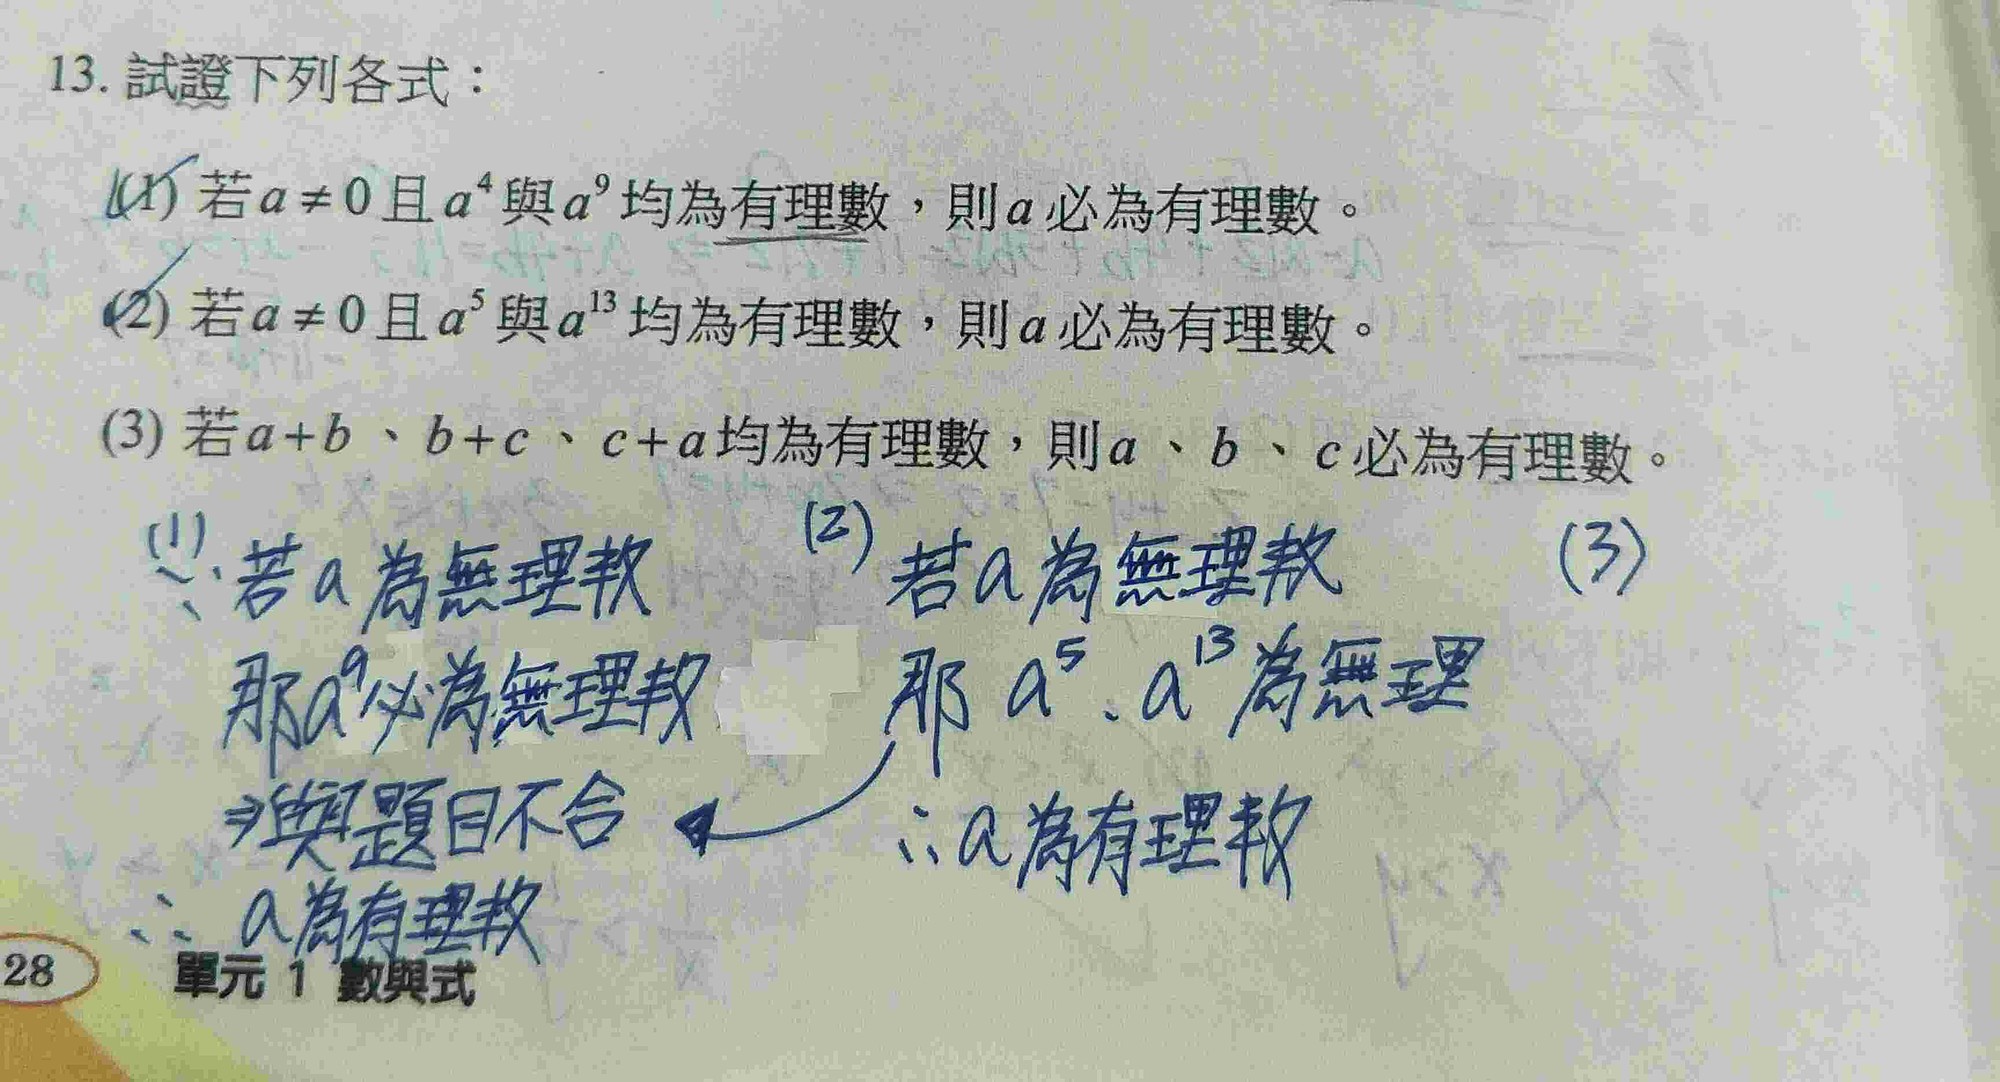 13. 試證下列各式：
(1) 若 a ≠ 0 且 a⁴ 與 a⁹ 均為有理數，則 a 必為有理數。
(2) 若 a ≠ 0 且 a⁵ 與 a¹³ 均為有理數，則 a 必為有理數。
(3) 若 a + b 、 b + c 、 c + a 均為有理數，則 a 、 b 、 c 必為有理數。
(1) ∵ 若 a 為無理數
那 a⁹ 必為無理數
⇒與題目不合
∴ a 為有理數
(2) 若 a 為無理數
那 a⁵、a¹³ 為無理
∴ a 為有理數
(3)
28 單元 1 數與式